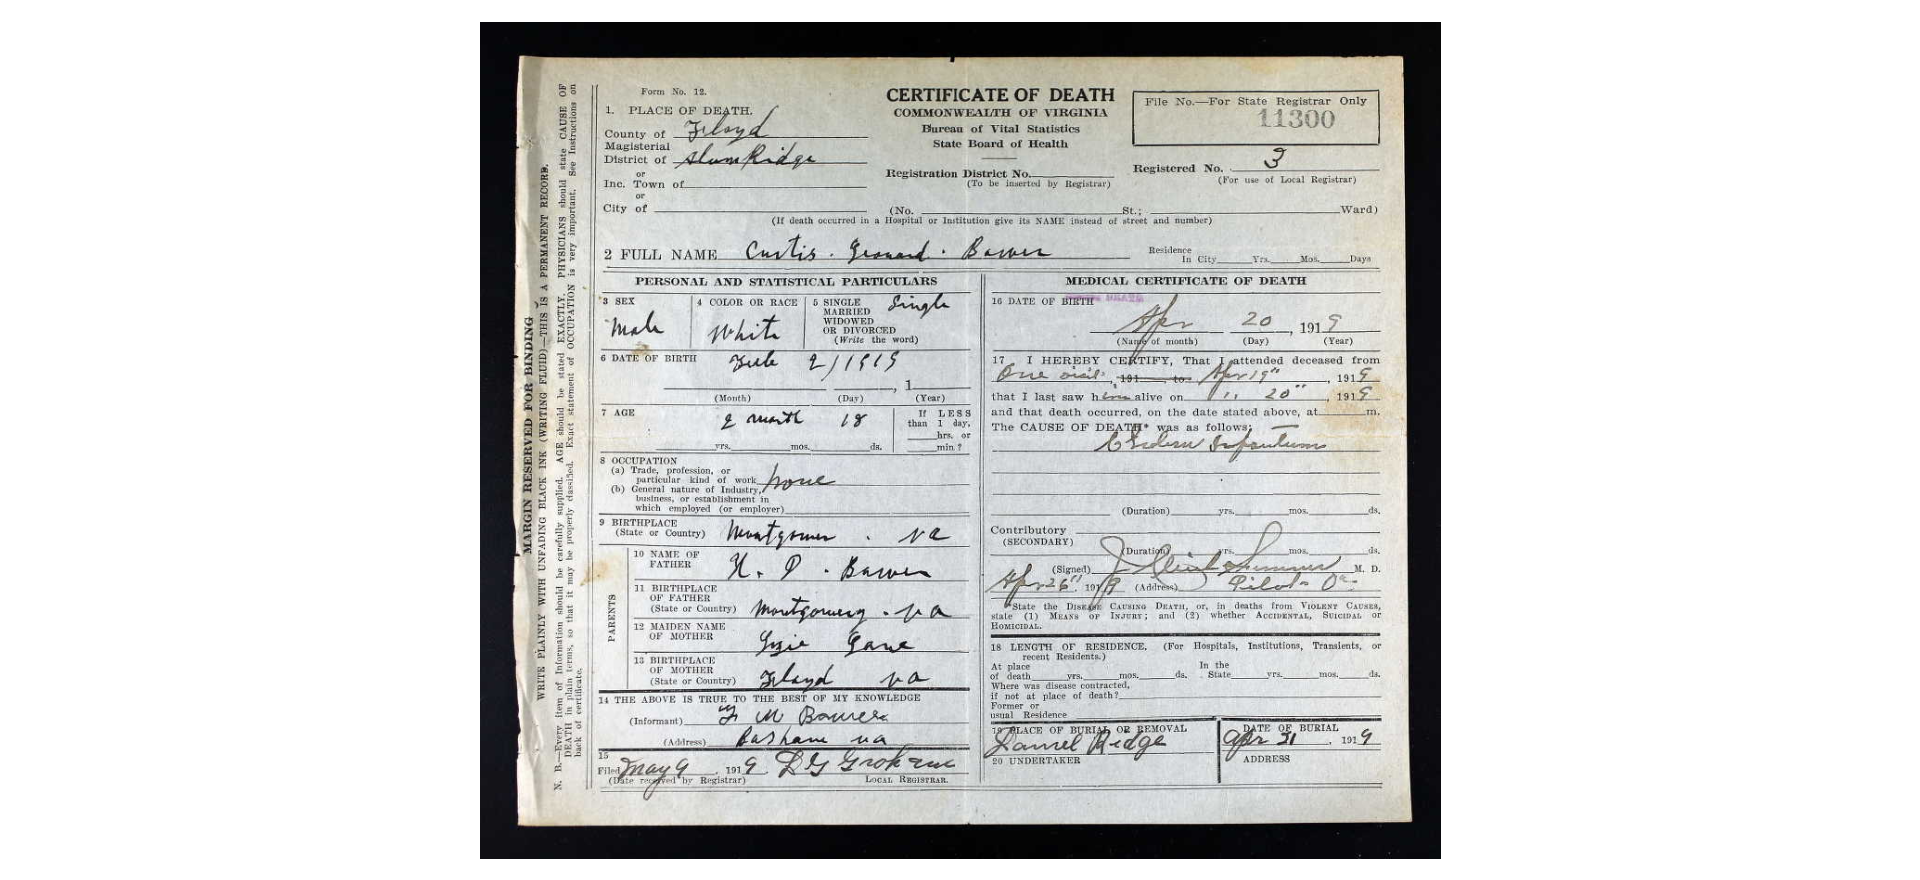 Form No. 12.
1. PLACE OF DEATH.
County of Floyd
Magisterial
District of Alum Ridge
or
Inc. Town of
or
City of
CERTIFICATE OF DEATH
COMMONWEALTH OF VIRGINIA
Bureau of Vital Statistics
State Board of Health
Registration District No.
(To be inserted by Registrar)
File No.—For State Registrar Only
11300
Registered No. 3
(For use of Local Registrar)
(No. St.; Ward)
(If death occurred in a Hospital or Institution give its NAME instead of street and number)
2 FULL NAME Curtis Bower
Residence
In City Yrs. Mos. Days
PERSONAL AND STATISTICAL PARTICULARS
3 SEX
Male
4 COLOR OR RACE
White
5 SINGLE
MARRIED
WIDOWED
OR DIVORCED
(Write the word)
Single
6 DATE OF BIRTH Feb 2/1919
, 1
(Month) (Day) (Year)
7 AGE
2 month 18
yrs. mos. ds.
If LESS
than 1 day,
hrs. or
min.?
8 OCCUPATION
(a) Trade, profession, or
particular kind of work none
(b) General nature of Industry,
business, or establishment in
which employed (or employer)
9 BIRTHPLACE
(State or Country) va
PARENTS
10 NAME OF
FATHER
Bower
11 BIRTHPLACE
OF FATHER
(State or Country) Montgomery. va
12 MAIDEN NAME
OF MOTHER
13 BIRTHPLACE
OF MOTHER
(State or Country) Floyd va
14 THE ABOVE IS TRUE TO THE BEST OF MY KNOWLEDGE
(Informant) M Bower
(Address) Basham va
15
Filed May 9, 1919
(Date received by Registrar) LOCAL REGISTRAR.
MEDICAL CERTIFICATE OF DEATH
16 DATE OF BIRTH DEATH
Apr 20, 1919
(Name of month) (Day) (Year)
17 I HEREBY CERTIFY, That I attended deceased from
One visit, 191 to Apr 19", 1919
that I last saw him alive on " 20", 1919
and that death occurred, on the date stated above, at m.
The CAUSE OF DEATH* was as follows:
Infantum
(Duration) yrs. mos. ds.
Contributory
(SECONDARY)
(Duration) yrs. mos. ds.
(Signed) M. D.
Apr 26", 1919 (Address) Pilot
*State the DISEASE CAUSING DEATH, or, in deaths from VIOLENT CAUSES,
state (1) MEANS OF INJURY; and (2) whether ACCIDENTAL, SUICIDAL or
HOMICIDAL.
18 LENGTH OF RESIDENCE. (For Hospitals, Institutions, Transients, or
recent Residents.)
At place In the
of death yrs. mos. ds. State yrs. mos. ds.
Where was disease contracted,
if not at place of death?
Former or
usual Residence
19 PLACE OF BURIAL OR REMOVAL
Laurel Ridge
DATE OF BURIAL
Apr 21, 1919
20 UNDERTAKER
ADDRESS
MARGIN RESERVED FOR BINDING
WRITE PLAINLY WITH UNFADING BLACK INK (WRITING FLUID)—THIS IS A PERMANENT RECORD.
N. B.—Every item of Information should be carefully supplied. AGE should be stated EXACTLY. PHYSICIANS should state CAUSE OF
DEATH in plain terms, so that it may be properly classified. Exact statement of OCCUPATION is very important. See Instructions on
back of certificate.